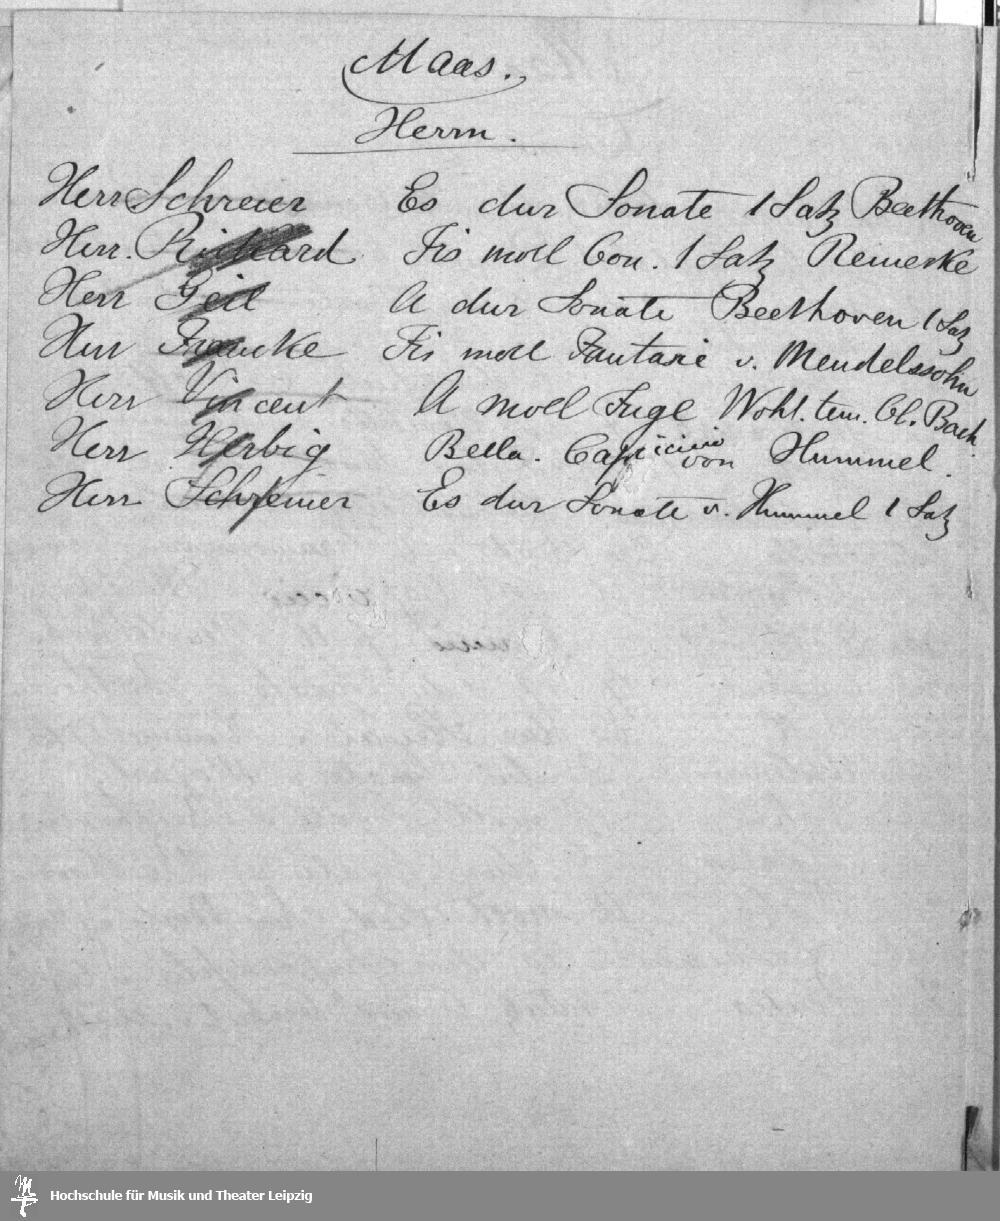 Maas.
Herrn.
Herr Schreier Es dur Sonate 1 Satz Beethoven
Herr. Rickard Fis moll Con. 1 Satz Reinecke
Herr Geil A dur Sonate Beethoven 1 Satz
Herr Francke Fis moll Fantasie v. Mendelssohn
Herr Vincent A moll Fuge Wohl. tem. Cl. Bach
Herr Herbig Bella. Capriccio von Hummel.
Herr Schreiner Es dur Sonate v. Hummel 1 Satz
Hochschule für Musik und Theater Leipzig